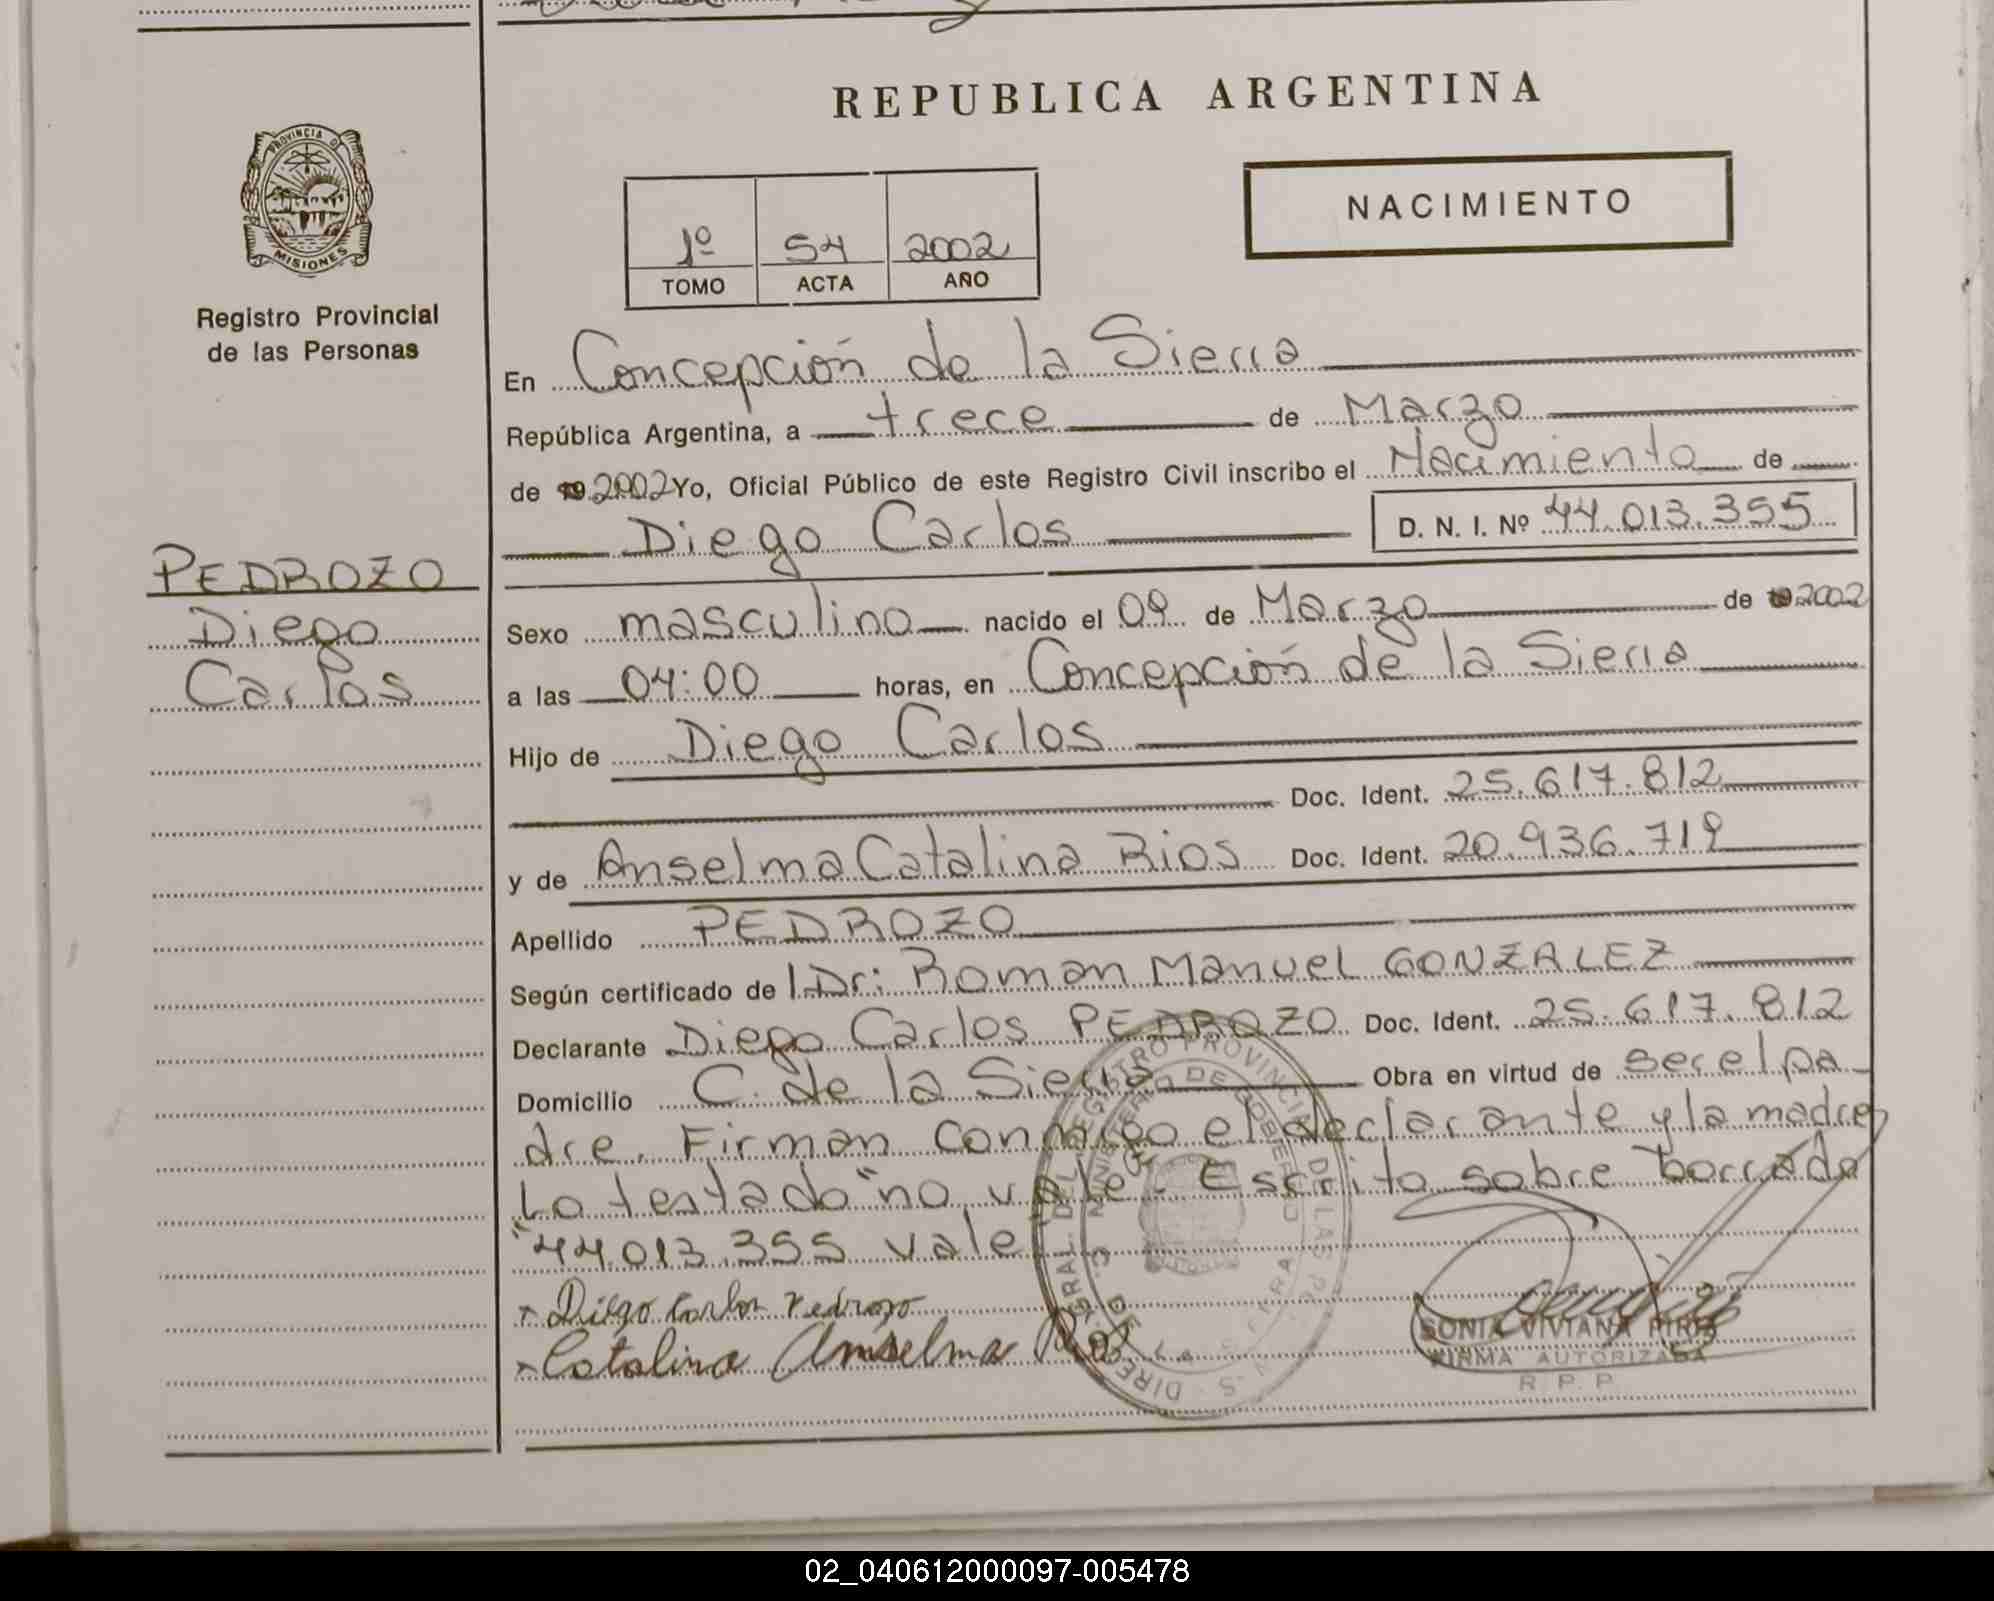 REPUBLICA ARGENTINA
PROVINCIA DE
MISIONES
Registro Provincial
de las Personas
1º 54 2002
TOMO ACTA AÑO
NACIMIENTO
PEDROZO
Diego
Carlos
En Concepción de la Sierra
República Argentina, a trece de Marzo
de 19 2002 Yo, Oficial Público de este Registro Civil inscribo el Nacimiento de
Diego Carlos D. N. I. Nº 44.013.355
Sexo masculino nacido el 09 de Marzo de 19 2002
a las 04:00 horas, en Concepción de la Sierra
Hijo de Diego Carlos
Doc. Ident. 25.617.812
y de Anselma Catalina Rios Doc. Ident. 20.936.719
Apellido PEDROZO
Según certificado de l Dr: Roman Manuel GONZALEZ
Declarante Diego Carlos PEDROZO Doc. Ident. 25.617.812
Domicilio C. de la Sierra Obra en virtud de ser el pa
dre. Firman conmigo el declarante y la madre
Lo testado "no vale". Escrito sobre borrado
"44.013.355 vale
Diego Carlos Pedrozo
Catalina Anselma Rios
SONIA VIVIANA PIRIS
FIRMA AUTORIZADA
R. P. P.
02_040612000097-005478